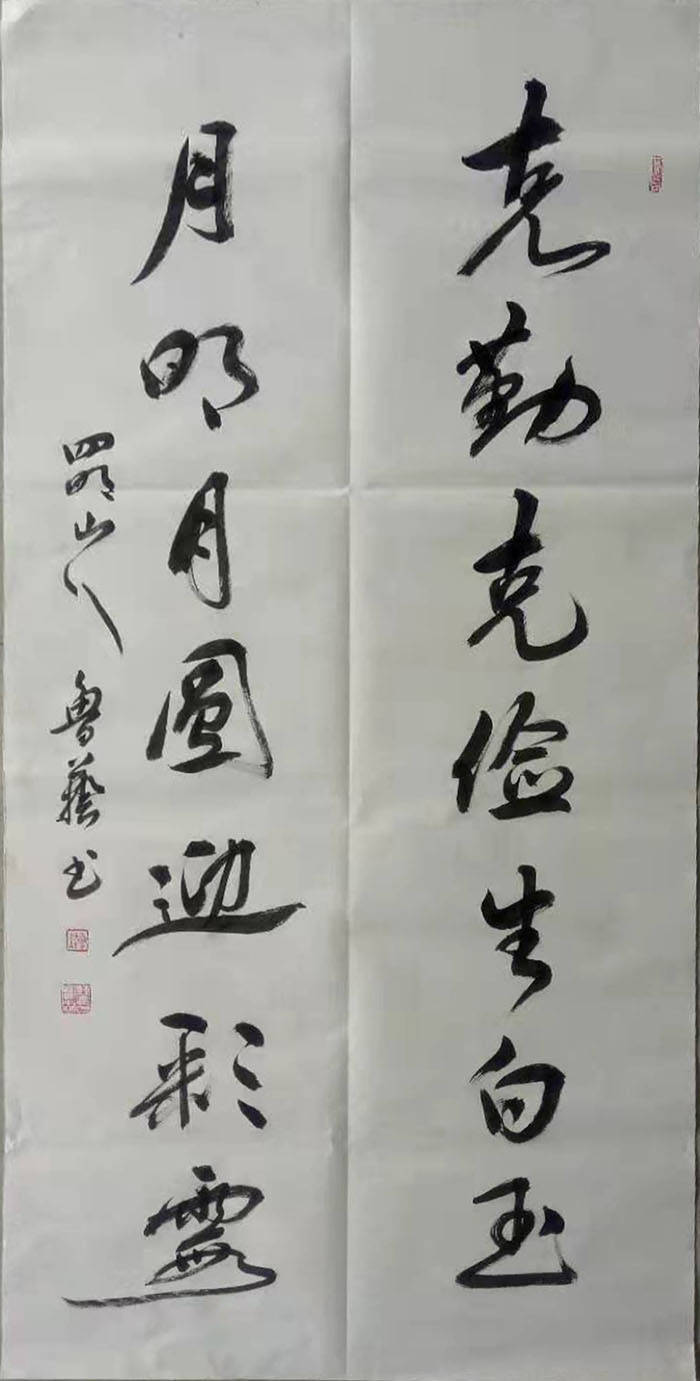 克勤克儉生白玉
月明月圓迎彩霞
四明山人魯藝書